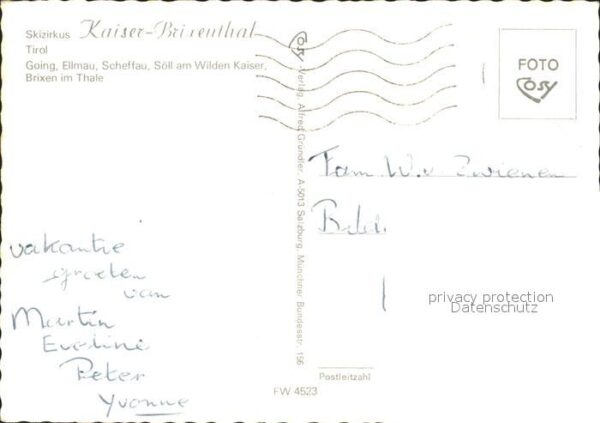 Skizirkus Kaiser-Brixenthal
Tirol
Going, Ellmau, Scheffau, Söll am Wilden Kaiser,
Brixen im Thale
FOTO
Cosy
Cosy Verlag Alfred Gründler, A-5013 Salzburg, Münchner Bundesstr. 156
Fam W.v Zwienen
vakantie
groeten
van
Martin
Eveline
Peter
Yvonne
privacy protection
Datenschutz
Postleitzahl
FW 4523